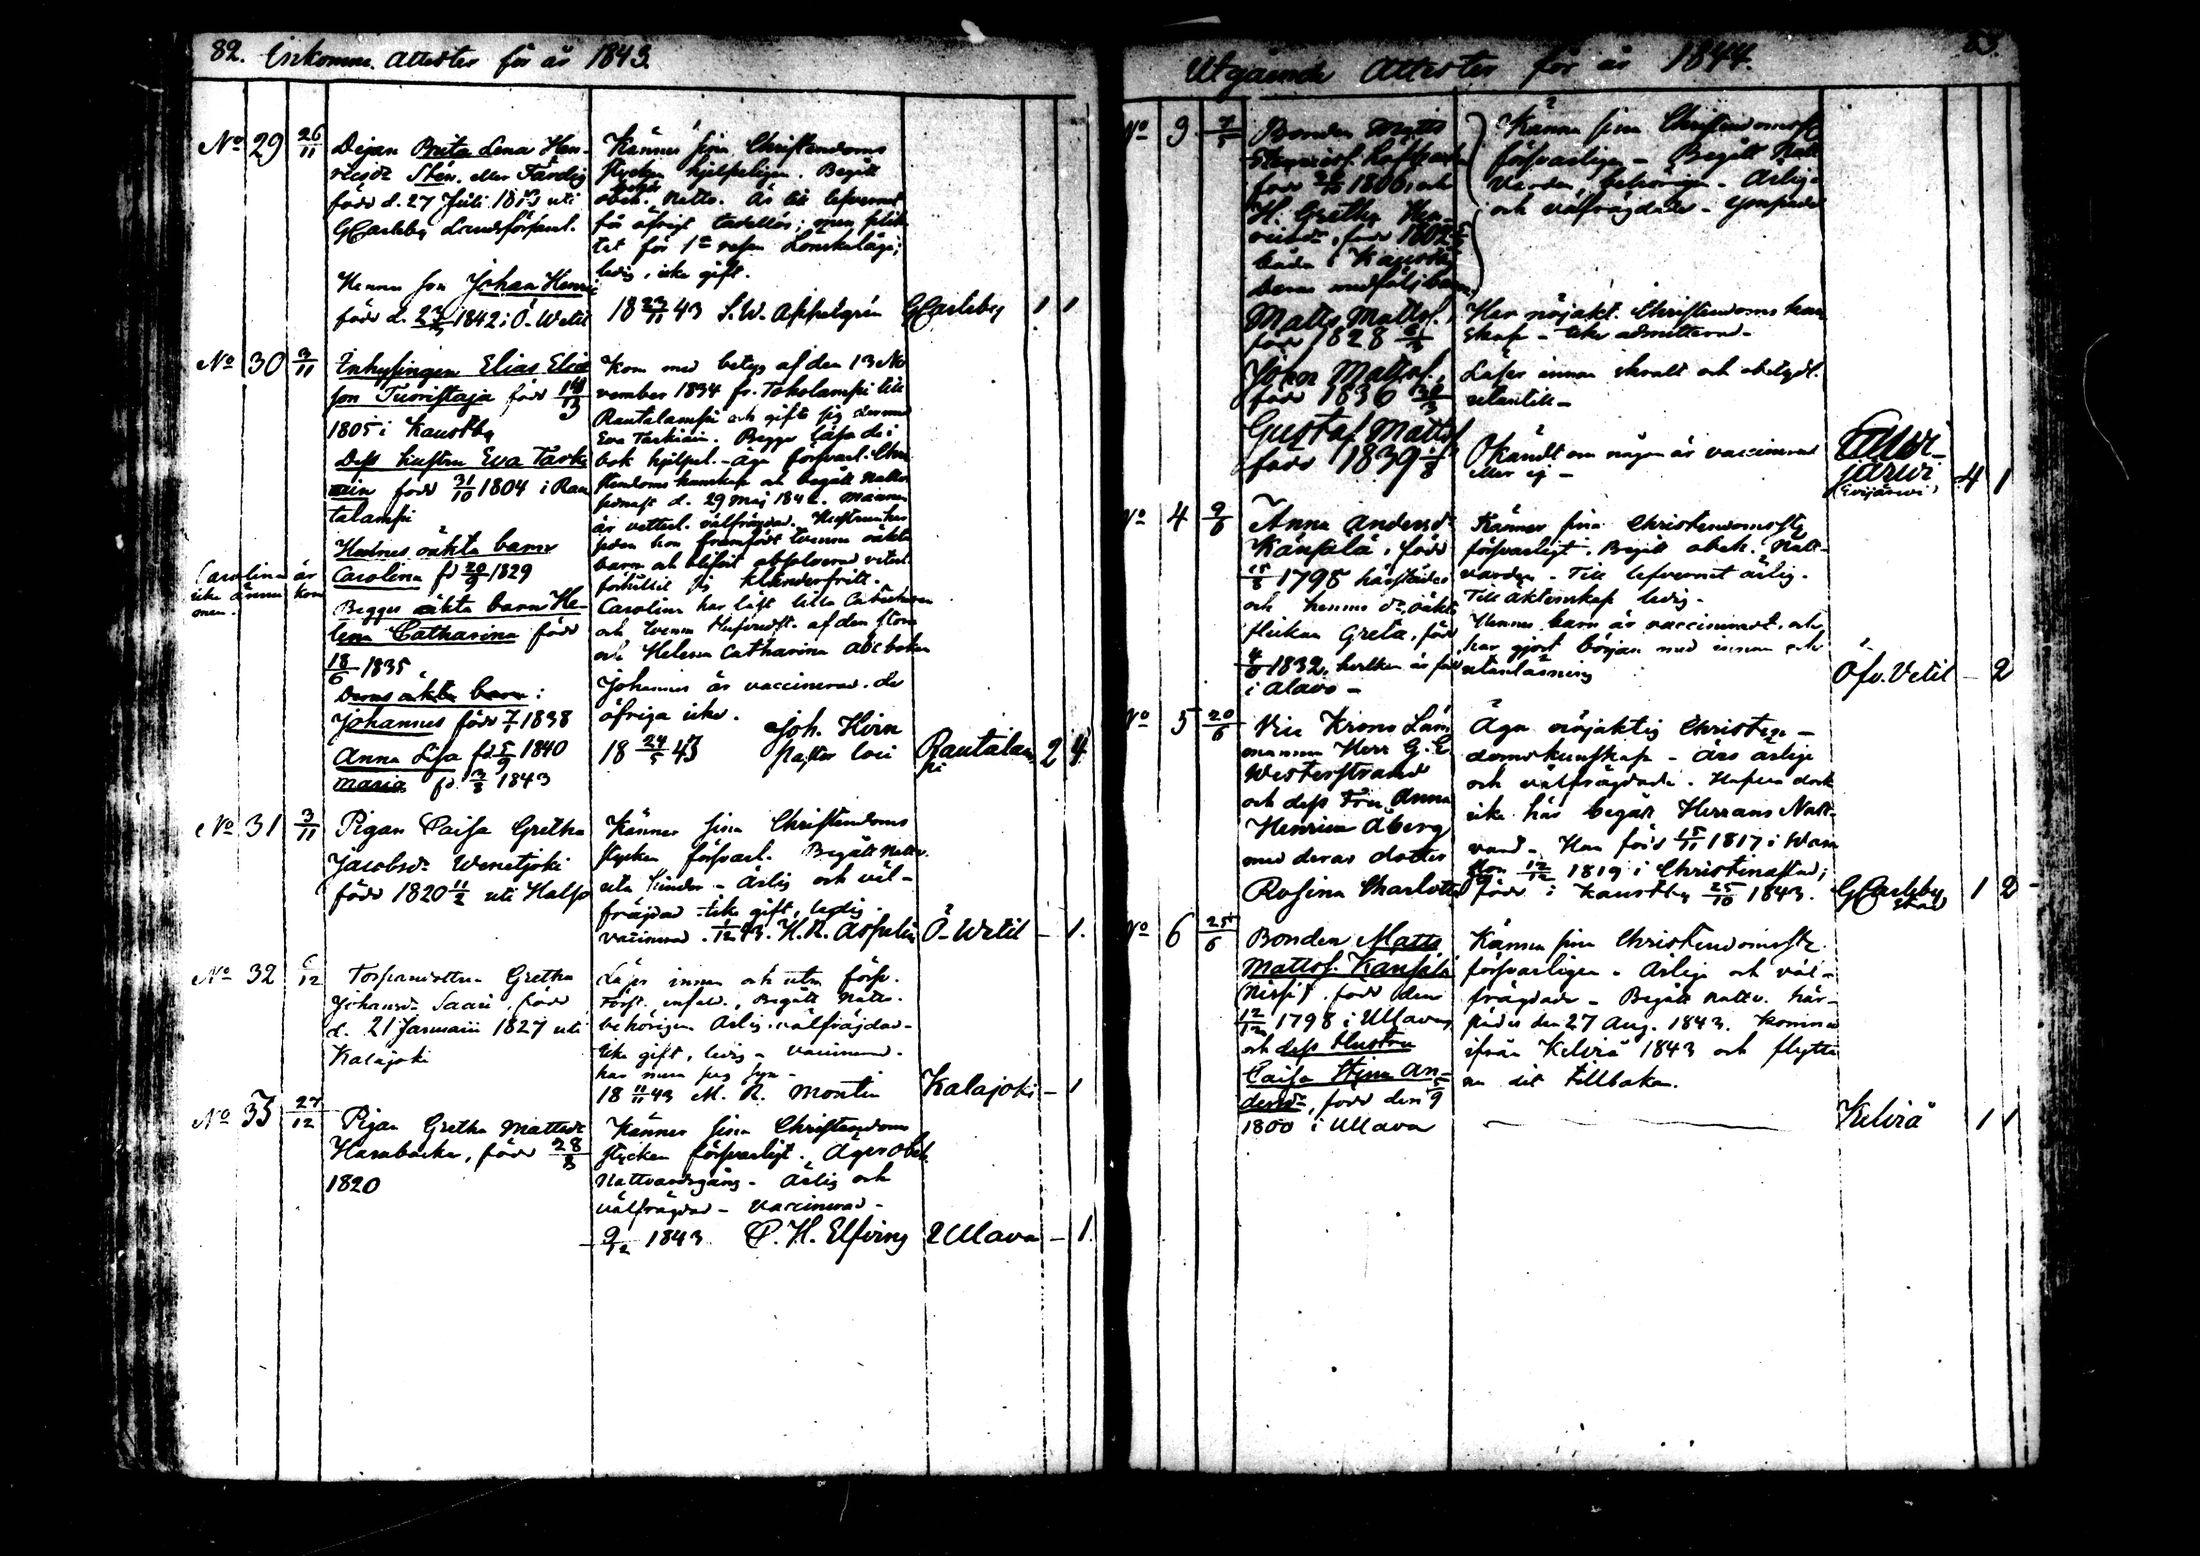 82. Inkomne Attester för år 1843.
No 29 26/11
Pigan Brita Lena Hen-
ricsdr Stén, eller Färdig
född d. 27 Juli 1813 uti
GCarleby Landsförsaml.
Hennes son Johan Henric
född d. 23/ 1842 i Ö. Wetil
Känner sina Christendoms
stycken hjelpeligen. Begått
behör.
obeh. Nattv. Är till lefvernet
för öfrigt tadellös; men plik-
tat för 1a resan Lönskaläge;
ledig, icke gift.
18 23/11 43 S.W. Appelgrén
GCarleby 1 1
No 30 3/11
Inhysingen Elias Elias
son Tunistaja född 14/
1805 i Kaustby
Dess hustru Eva Tarki
ain född 31/10 1804 i Rau
talampi
Hustrus oäkta barn
Carolina fd 20/9 1829
Begges oäkta barn He-
lena Catharina född
18/6 1835
Deras äkta barn:
Johannes född 7/7 1838
Anna Lisa fd 5/9 1840
Maria fd 3/3 1843
Carolina är
icke ännu kom
men.
Kom med betyg af den 13 No
vember 1834 fr. Toholampi till
Rautalampi och gifte sig därmed
Eva Tarkiain. Begge läsa de i
bok hjelpel. - äga försvarl. Chri
stendoms kunskap och begått Nattv.
sednast d. 29 Maj 1842. Mannen
är vetterl. välfrägdad. Hustrun har
sedan hon framfödt tvenne oäkta
barn och blifvit absolverad veterl.
förhållit sig klanderfritt.
Carolina har läst lilla Catechesen
och tvenne Hufvudst. af den stora
och Helena Catharina abc boken
Johannes är vaccinerad. de
öfriga icke.
18 24/5 43
Joh. Hvin
Pastor loci
Rautalam
pi 2 4
No 31 3/11
Pigan Caisa Gretha
Jacobsdr Wenetjoki
född 1820 11/2 uti Halso
Känner sina Christendoms
stycken försvarl. Begått Nattv.
utan hinder - Ärlig och väl-
frägdad - icke gift, ledig.
vaccinerad. 1/12 43. H. R. Aspelin
Ö- Wetil - 1.
No 32 6/12
Torparedottren Gretha
Johansdr Saari, född
d. 21 Januarii 1827 uti
Kalajoki
Läser innan och utan försv.
Först. enfald., Begått Nattv.
behörigen Ärlig, välfrägdad -
Icke gift, ledig - vaccinerad.
18 11/11 43 M. R. Montin
Kalajoki - 1
No 33 27/12
Pigan Gretha Mattsdr
Harabacka, född 28/8
1820
Känner sina Christendoms
stycken försvarligt. Äger obeh.
Nattvardsgång - Ärlig och
välfrägdad - Vaccinerad -
9/12 1843 C. H. Elfving
Ullava - 1.
Utgående Attester för år 1844. 83.
No 3 7/5
Bonden Matts
född 1806, och
H. Gretha Hen-
ricsdr, född 1802
båda i Kaustby
Deras medföljd barn
Matts Mattss.
född 1828
Johan Mattss.,
född 1836 30/3
Gustaf Mattss
född 1839 1/8
Känna sina Christendomsst
försvarligen - Begått Natt
varden behörigen - Ärliga
och välfrägdade -
Har nöjakt. Christendoms kun
skap - icke admitterad -
Läser innan skralt och obetydl.
utantill -
Okändt om någon är vaccinerad
eller ej -
järwi
(Evijärwi) 4 1
No 4 9/6
Anna Andersdr
Känsälä, född
15/8 1795 härstädes
och hennes oäkta
flickan Greta, född
4/ 1832, hvilken är född
i Alavo -
Känner sina Christendomsst
försvarligt. Begått obeh. Natt-
varden. Till lefvernet ärlig.
Till äktenskap ledig -
Hennes barn är vaccinerad, och
har gjort början med innan och
utanläsning
Öfv. Vetil - 2
No 5 20/6
Vice Krono Län
mannen Herr G. E.
Westerstrand
och dess Fru Anna
Henrica Åberg
med deras dotter
Rosina Charlotta
Äga nöjaktig Christen-
domskunskap - äro ärliga
och välfrägdade. Hafva dock
icke här begått Herrans Natt-
vard - Han född 15/11 1817 i Wasa
Hon 12/12 1819 i Christinastad;
född i Kaustby 25/10 1843.
GCarleby
stad 1 2
No 6 25/6
Bonden Matts
Mattss. Känsälä
född den
12/12 1798 i Ullava,
och dess Hustru
Caisa Stina An-
dersdr, född den 9
1800 i Ullava
Känna sina Christendomsst.
försvarligen - Ärliga och väl-
frägdade - Begått Nattv. här-
städes den 27 Aug. 1843. Komna
ifrån Kelviå 1843 och flytta
nu dit tillbaka.
Kelviå 1 1